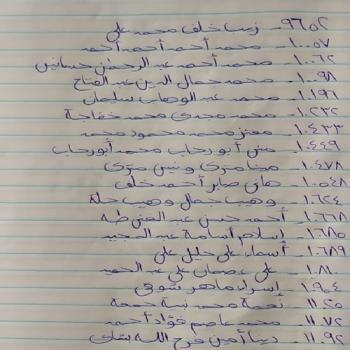 ٩٦٥٢ـ زينب خلف محمد على
١٠٠٥٧ـ محمد أحمد أحمد أحمد
١٠٠٦٢ـ محمد أحمد عبد الرحمن حسانين
١٠٠٩٨ـ محمد جمال الدين عبد الفتاح
١٠١٩٦ـ محمد عبد الوهاب سلمان
١٠٢٣٢ـ محمد مجدى محمد خفاجة
١٠٤٣٣ـ معتز محمد محمود محمد
١٠٤٤٩ـ منى أبو رحاب محمد أبو رحاب
١٠٤٧٨ـ مينا مرى ونيس مرى
١٠٥٤٨ـ هانى صابر أحمد خلف
١٠٦٢٤ـ وهيب جمال وهيب حلة
١٠٦٦٨ـ أحمد حسن عبد الغنى طه
١٠٦٨٥ـ إسلام أسامة عبد المجيد
١٠٦٨٩ـ أسماء على خليل على
١٠٨٨٠ـ على عصمان على عبد الحميد
١٠٩٠٤ـ إسراء ماهر شوقى
١١٠٢٥ـ نعمة محمد جمعة
١١٠٧٢ـ محمد عاصم فؤاد أحمد
١١٠٩٢ـ دينا أمين فرج الله